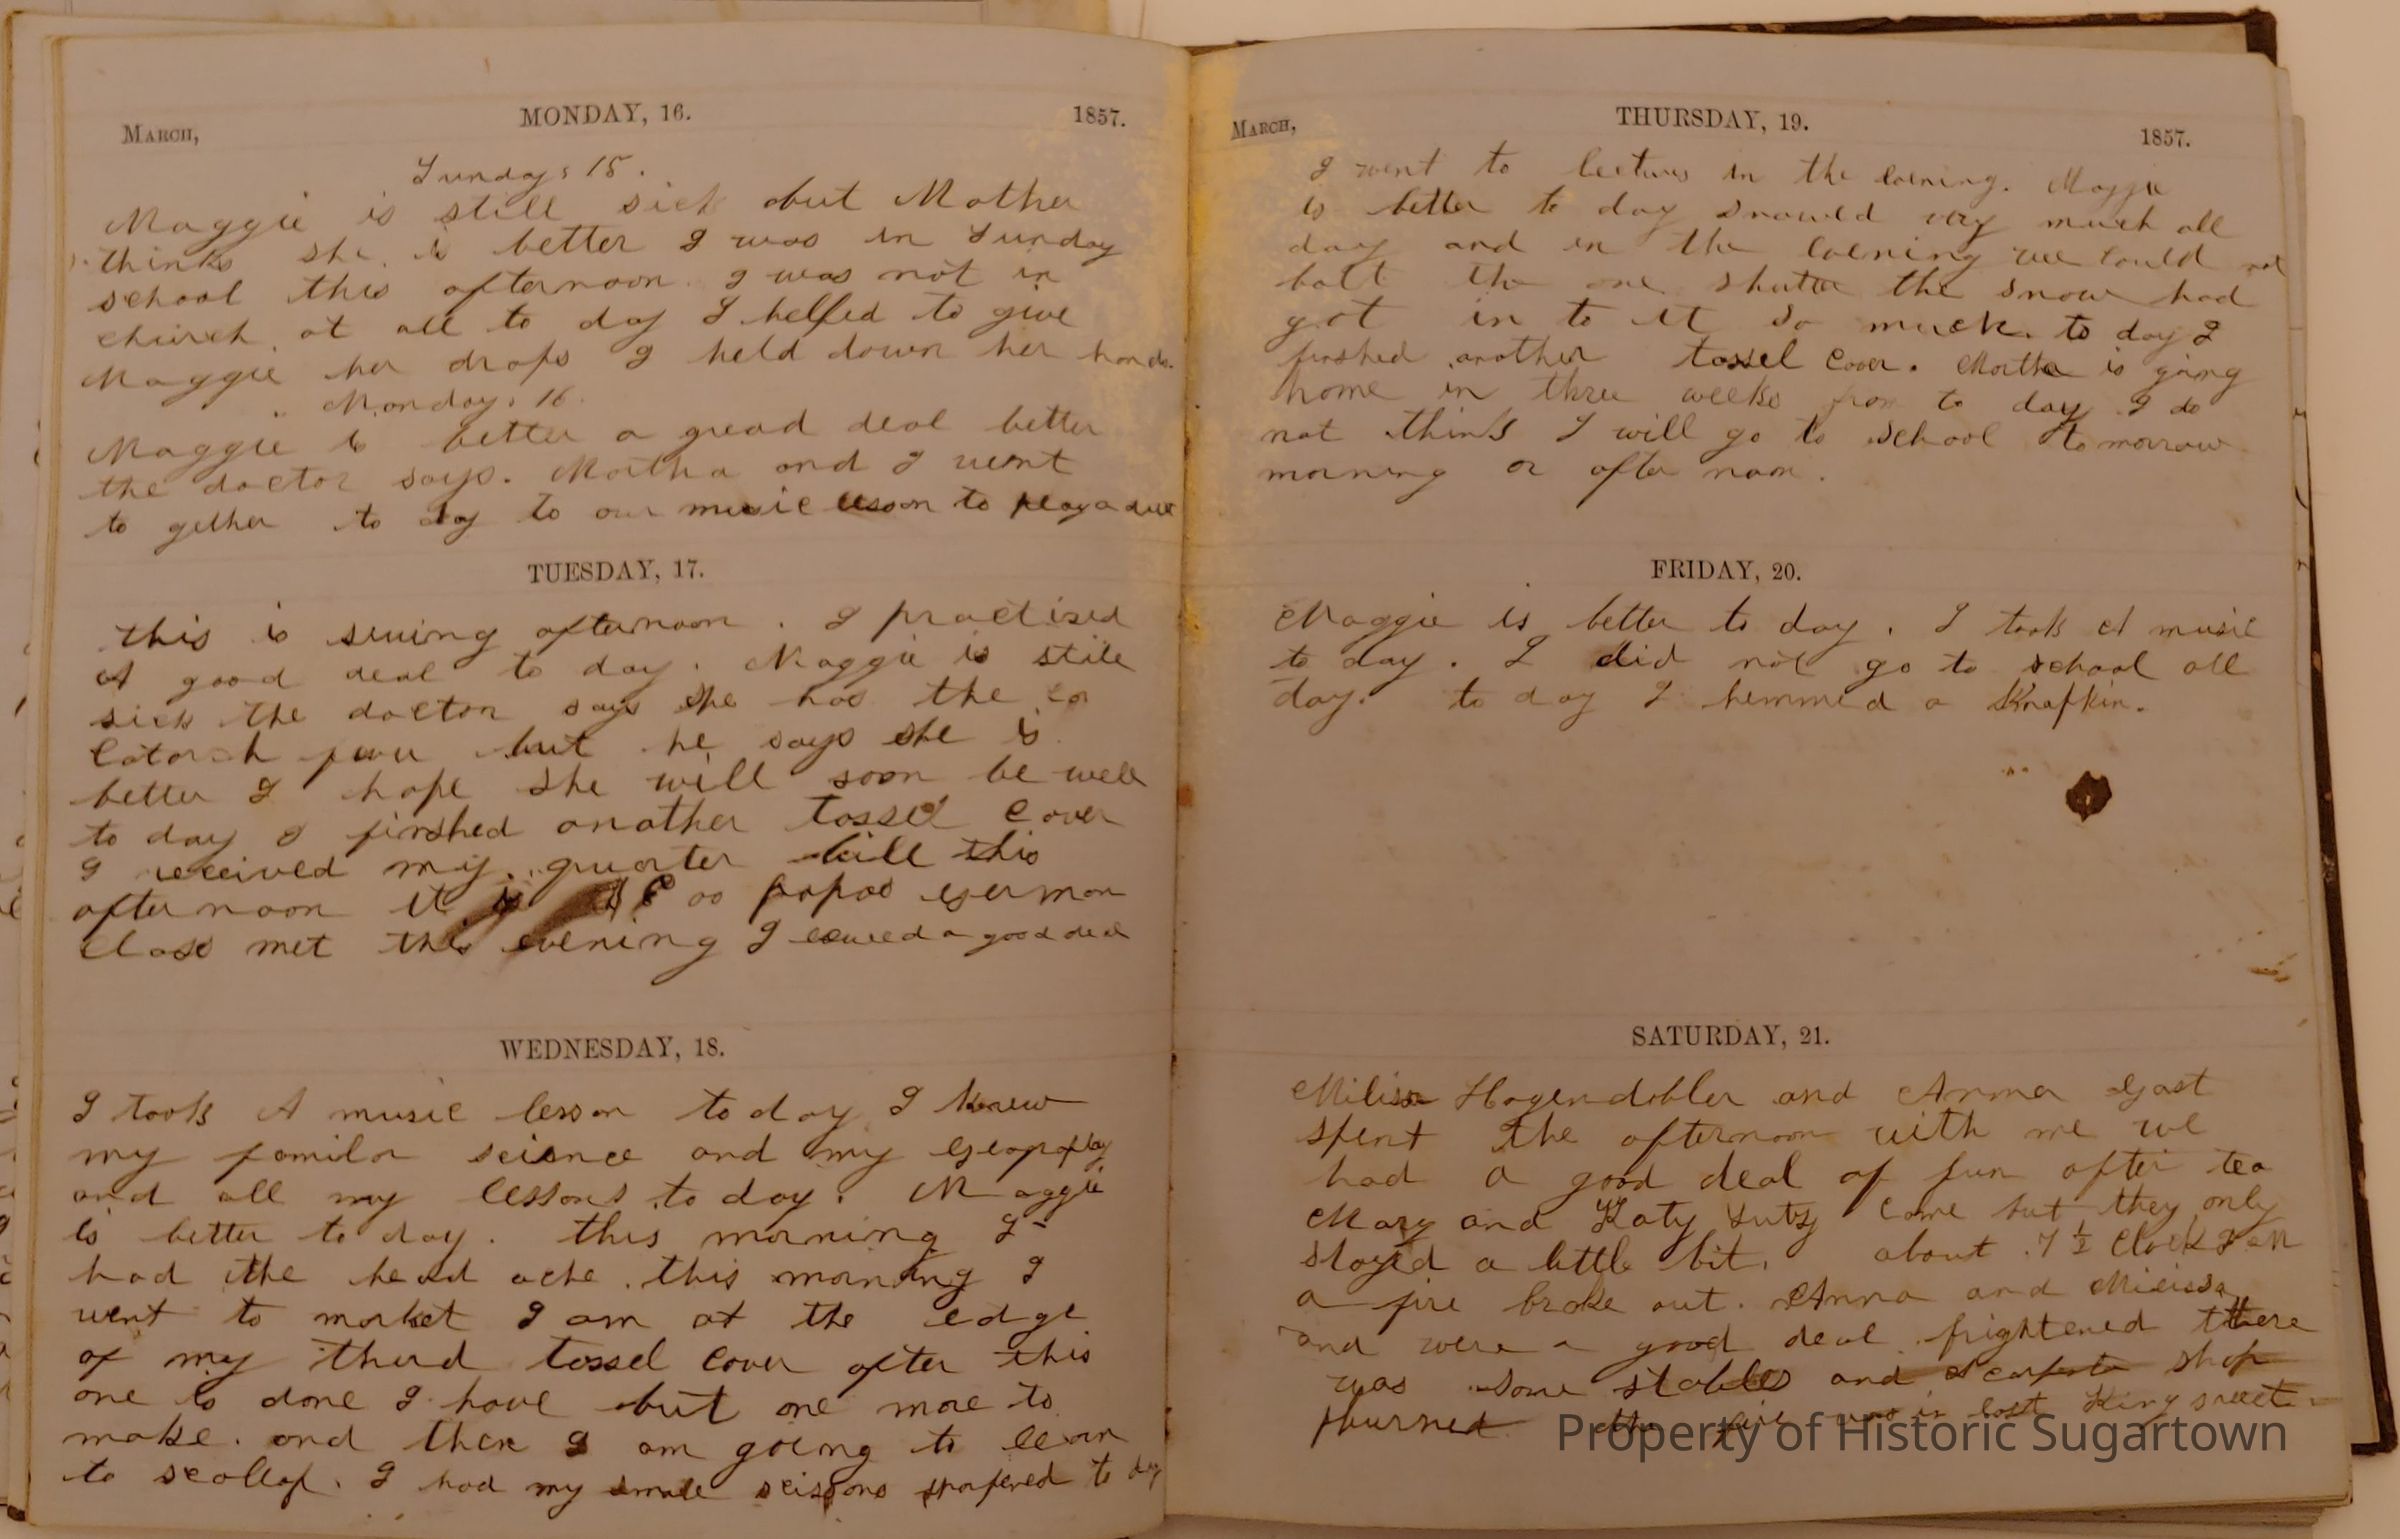 MARCH, MONDAY, 16. 1857.
Sunday, 15.
Maggie is still sick but Mother
thinks she is better I was in Sunday
school this afternoon. I was not in
church at all to day I helped to give
Maggie her drops I held down her hands.
Monday, 16.
Maggie is better a gread deal better
the doctor says. Martha and I went
to gether to day to our music lesson to play a duet
TUESDAY, 17.
this is sewing afternoon. I practised
A good deal to day. Maggie is still
sick the doctor says she has the
but he says she is
better I hope she will soon be well
to day I finshed another tassel cover
I received my quarter bill this
afternoon it is 00 papas German
class met this evening I sewed a good deal
WEDNESDAY, 18.
I took A music lesson to day I knew
my familar science and my Geography
and all my lessons to day. Maggie
is better to day. this morning I
had the head ache. this morning I
went to market I am at the edge
of my therd tassel cover after this
one is done I have but one more to
make. and then I am going to learn
to scollop. I had my small scissors sharpened to day
MARCH, THURSDAY, 19. 1857.
I went to lectures in the evening. Maggie
is better to day snowed very much all
day and in the evening we could not
bolt the one shutter the snow had
got in to it so much. to day I
finshed another tassel cover. Martha is going
home in three weeks from to day I do
not think I will go to school tomorrow
morning or after noon.
FRIDAY, 20.
Maggie is better to day. I took A music
to day. I did not go to school all
day. to day I hemmed a Knapkin.
SATURDAY, 21.
Milissa Hagendobler and Anna Gast
spent the afternoon with me we
had a good deal of fun after tea
Mary and Katy came but they only
stayed a little bit. about 7 1/2 Clock
a fire broke out. Anna and Milissa
and were a good deal frightened there
was some stables and shop
burned the fire was in East King street.
Property of Historic Sugartown